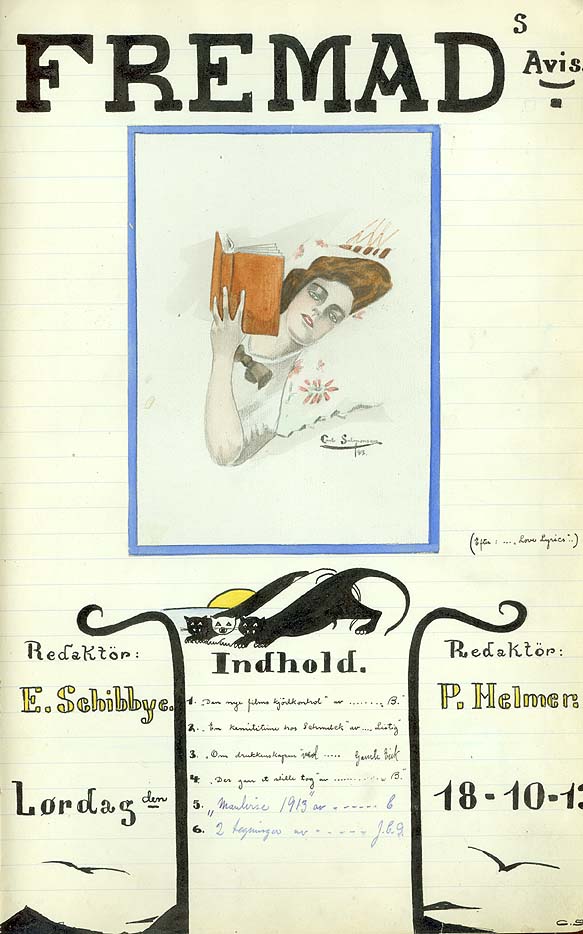 FREMADS
Avis.
Carl Salomonsen
1913.
(Efter: .... "Love Lyrics"..)
Redaktör:
E. Schibbye.
Lørdag den
Indhold.
1. "Den nye films kjödkontrol" av ........ B.
2. "En kemitime hos Schmelck" av ... Listig
3. "Om drukkenskapen" ved ..... Gamle Erik
4. "Der gaar et stille tog" av .......... B.
5. "Mauvise 1913" av - - - - - - C
6. 2 tegninger av - - - - - J.C.G.
Redaktör:
P. Helmer.
18-10-13
C.S